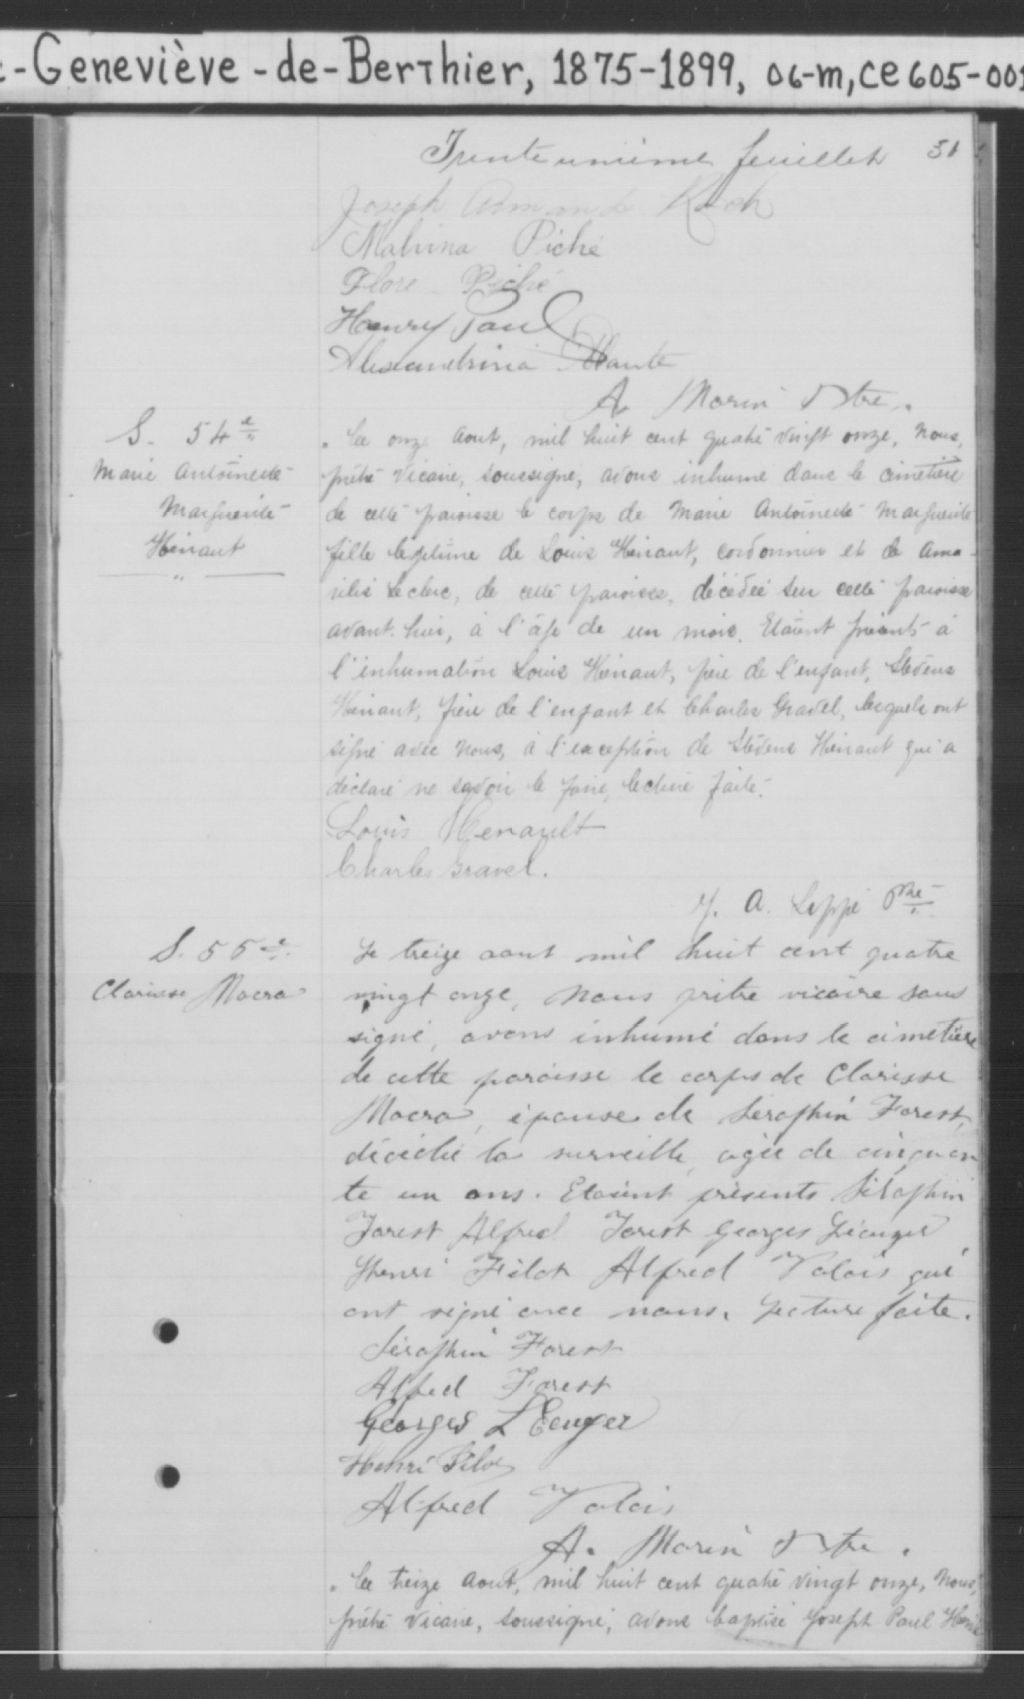 -Geneviève-de-Berthier, 1875-1899, 06-m, ce605-001
Trente unième feuillet 31
Joseph Armand Koch
Malvina Piché
Flore Piché
Henry Paul
Alexandrina Plante
A. Morin Ptre.
S. 54e
Marie Antoinette
Marguerite
Hénaut
Ce onze aout, mil huit cent quatre vingt onze, nous,
prêtre vicaire, soussigné, avons inhumé dans le cimetière
de cette paroisse le corps de Marie Antoinette Marguerite
fille legitime de Louis Hénaut, cordonnier et de Ama-
rilis Leclerc, de cette paroisse, décédée sur cette paroisse
avant-hier, à l'âge de un mois. Etaient présents à
l'inhumation Louis Hénaut, père de l'enfant, Stevens
Hénaut, frère de l'enfant et Charles Gravel, lesquels ont
signé avec nous, à l'exception de Stevens Hénaut qui a
déclaré ne savoir le faire, lecture faite.
Louis Henault
Charles Gravel.
J. A. Lippé Ptre
S. 55e
Clarisse Macra
Le treize aout mil huit cent quatre
vingt onze, nous pritre vicaire sous
signé, avons inhumé dans le cimetière
de cette paroisse le corps de Clarisse
Macra, épouse de Séraphin Forest,
décédée la surveille, agée de cinquan
te un ans. Etaient présents Séraphin
Forest Alfred Forest Georges
Henri Alfred Valois qui
ont signé avec nous. Lecture faite.
Séraphin Forest
Alfred Forest
Georges
Henri
Alfred Valois
A. Morin Ptre.
Ce treize aout, mil huit cent quatre vingt onze, nous,
prêtre vicaire, soussigné, avons baptisé Joseph Paul